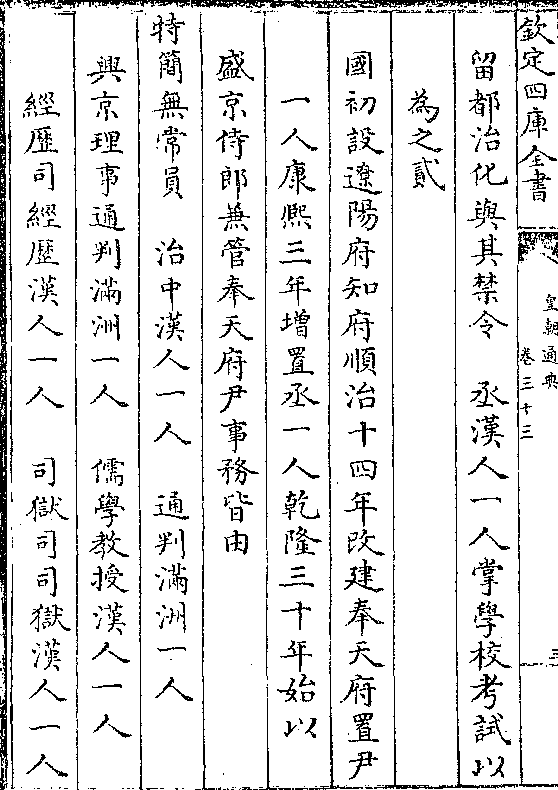 欽定四庫全書
皇朝通典
卷三十三
三
留都治化與其禁令　丞漢人一人掌學校考試以
為之貳
國初設遼陽府知府順治十四年改建奉天府置尹
一人康熙三年増置丞一人乾隆三十年始以
盛京侍郎兼管奉天府尹事務皆由
特簡無常員　治中漢人一人　通判滿洲一人
興京理事通判滿洲一人　儒學教授漢人一人
經歷司經歷漢人一人　司獄司司獄漢人一人